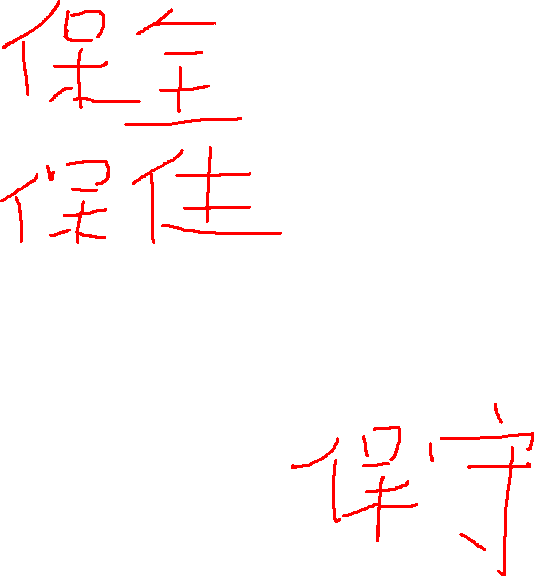 保全
保住
保守